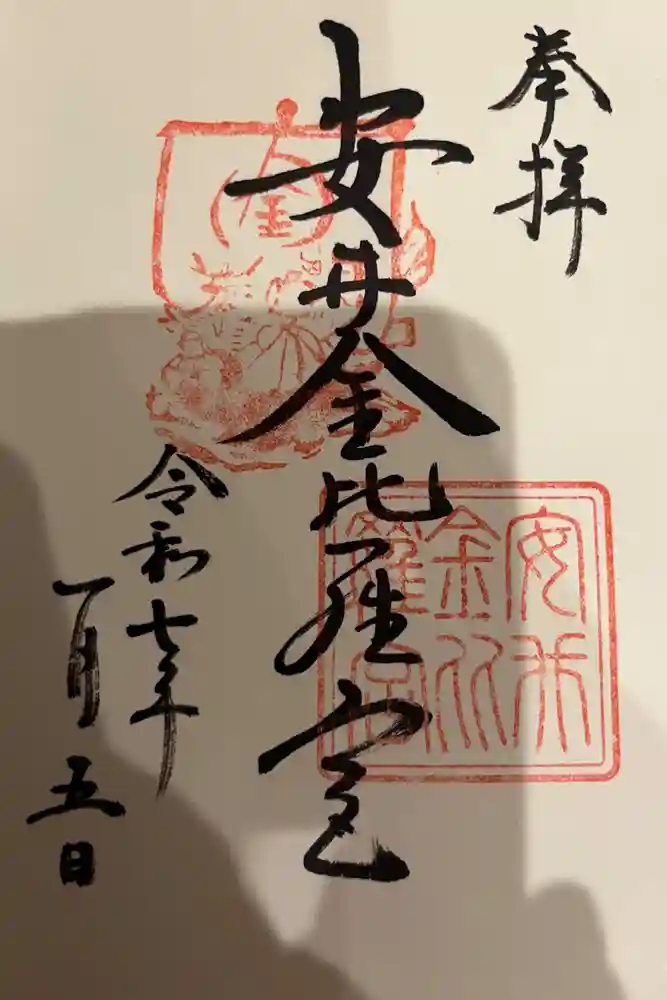 奉拝
安井金比羅宮
令和七年
一月五日
安井
金比
羅宮
金